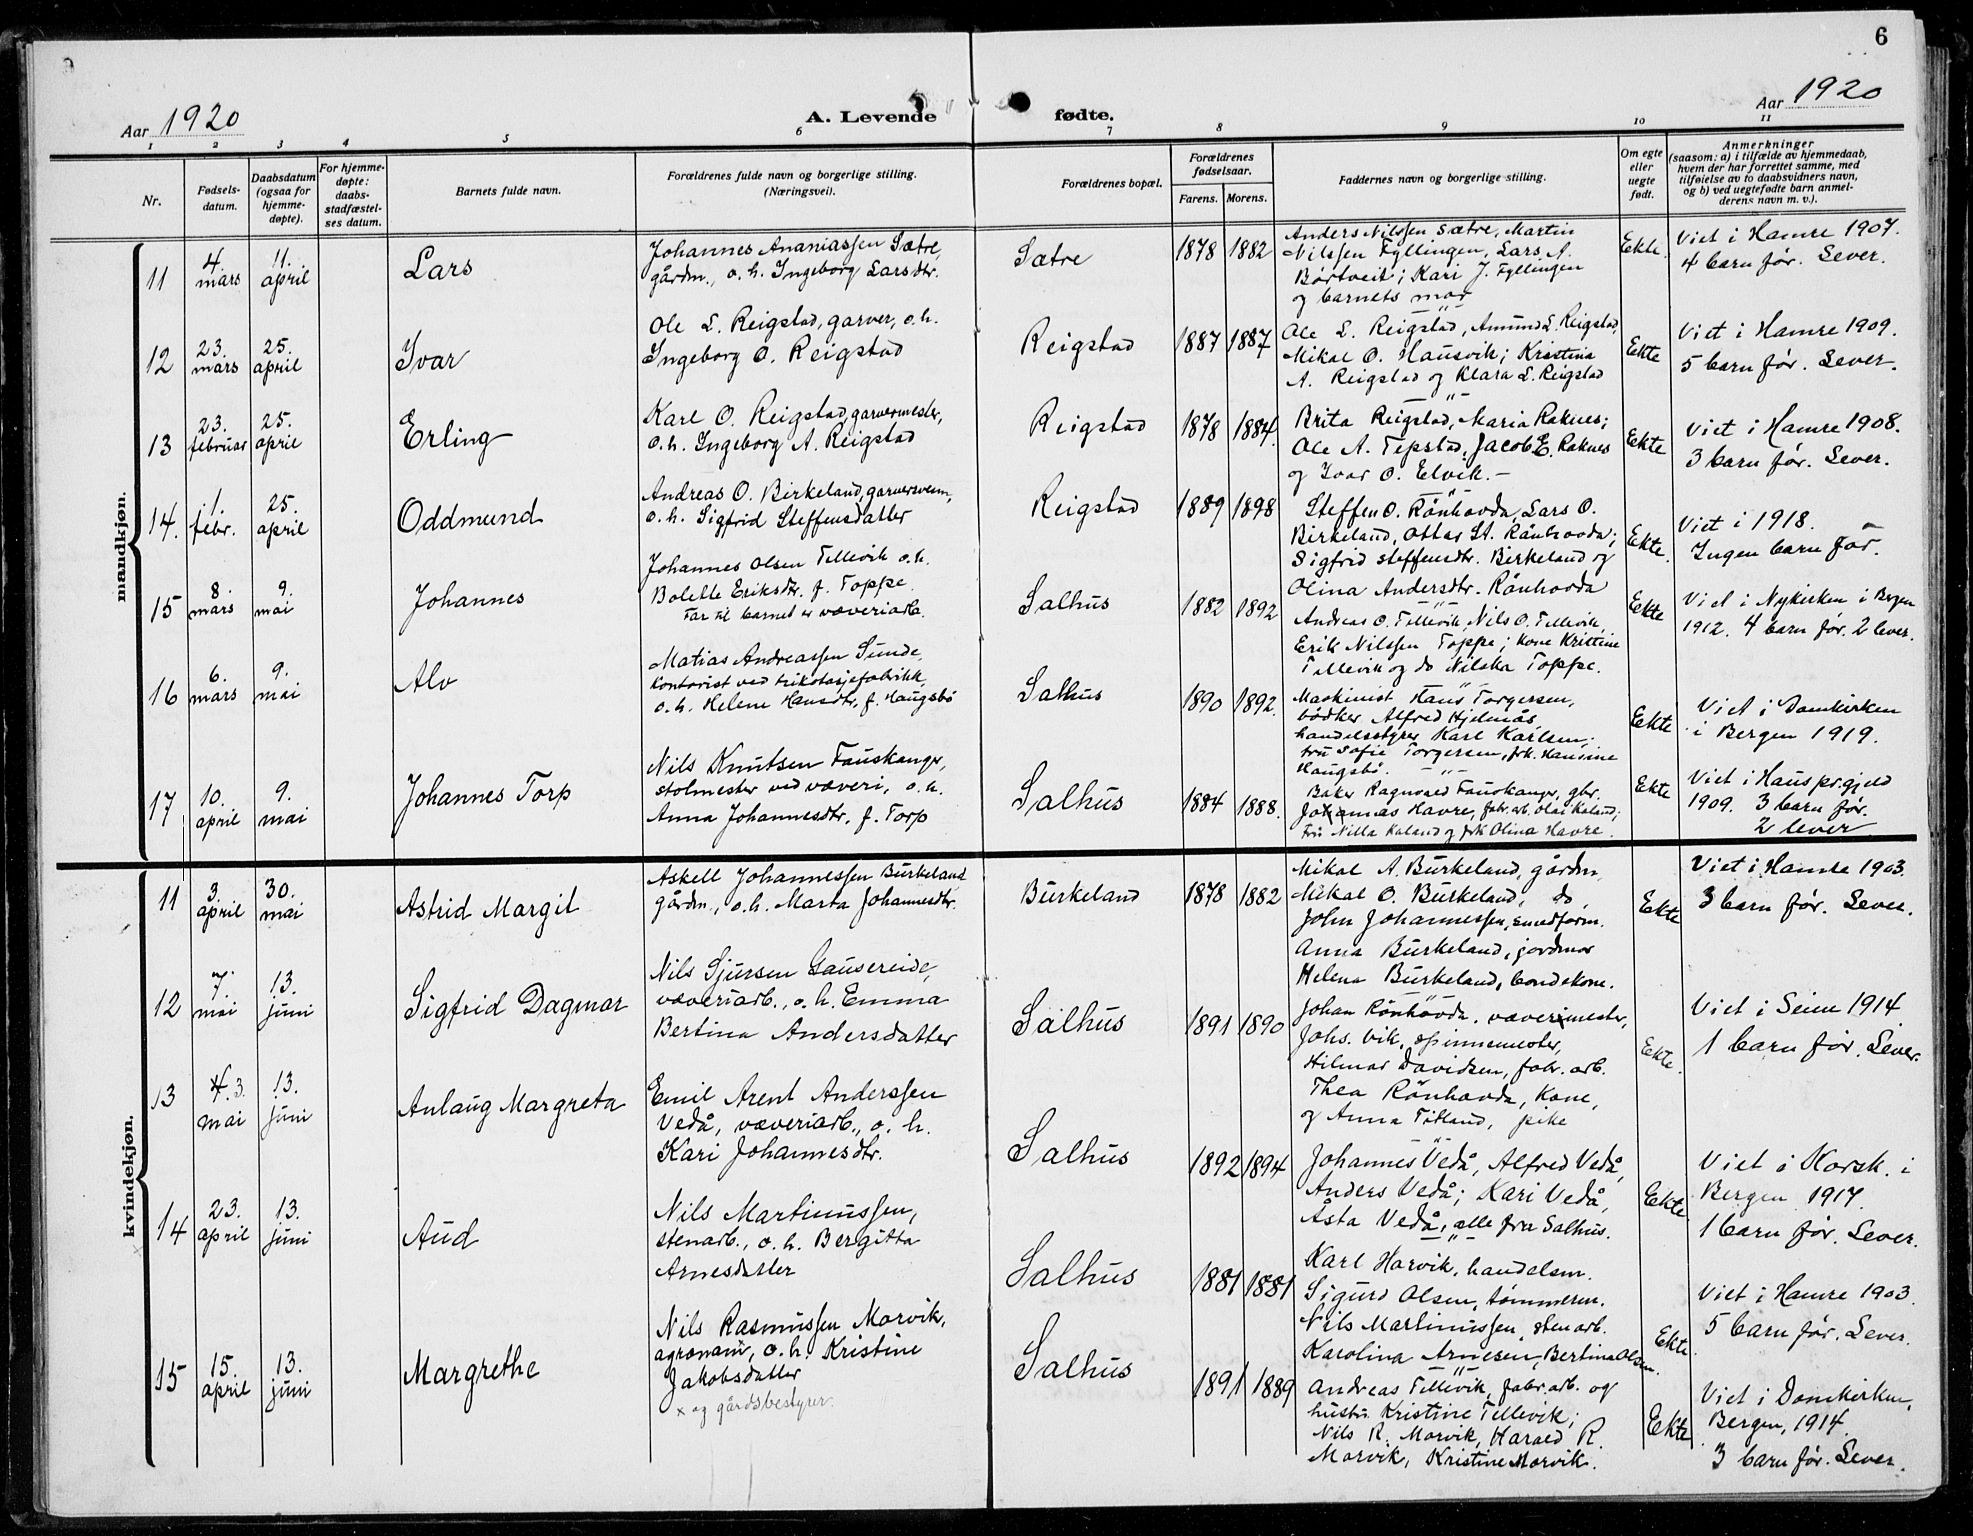 6
Aar 1920
A. Levende fødte.
Aar 1920
1 2 3 4 5 6 7 8 9 10 11
Nr.
Fødsels-
datum.
Daabsdatum
(ogsaa for
hjemme-
døpte).
For hjemme-
døpte:
daabs-
stadfæstel-
ses datum.
Barnets fulde navn.
Forældrenes fulde navn og borgerlige stilling.
(Næringsvei).
Forældrenes bopæl.
Forældrenes
fødselsaar.
Farens. Morens.
Faddernes navn og borgerlige stilling.
Om egte
eller
uegte
født.
Anmerkninger
(saasom: a) i tilfælde av hjemmedaab,
hvem der har forrettet samme, med
tilføielse av to daabsvidners navn,
og b) ved uegtefødte barn anmel-
derens navn m. v.).
mandkjøn.
11
4
mars
11.
april
Lars
Johannes Ananiassen Sætre,
gårdm., o. h. Ingeborg Larsdtr.
Sætre
1878 1882
Anders Nilssen Sætre, Martin
Nilssen Fyllingen, Lars A.
Børtveit; Kari J. Fyllingen
og barnets mor
Ekte.
Viet i Hamre 1907.
4 barn før. Lever.
12
23.
mars
25.
april
Ivar
Ole L. Reigstad, garver, o. h.
Ingeborg O. Reigstad
Reigstad
1887 1887
Ole L. Reigstad, Amund L. Reigstad,
Mikal O. Hausvik; Kristina
A. Reigstad og Klara L. Reigstad
Ekte
Viet i Hamre 1909.
5 barn før. Lever.
13
23.
februar
25.
april
Erling
Karl O. Reigstad, garvermester,
o. h. Ingeborg A. Reigstad
Reigstad
1878 1884
Brita Reigstad, Maria Raknes;
Ole A. Tepstad, Jacob E. Raknes
og Ivar O. Elvik. -
Ekte
Viet i Hamre 1908.
3 barn før. Lever.
14.
1.
febr.
25.
april
Oddmund
Andreas O. Birkeland, garversvenn,
o. h. Sigfrid Steffensdatter
Reigstad
1889 1898
Steffen O. Rønhovda, Lars O.
Birkeland, Ottar St. Rønhovda;
Sigfrid Steffensdtr. Birkeland og
Olina Andersdtr. Rønhovda
Ekte.
Viet i 1918.
Ingen barn før.
15
8.
mars
9.
mai
Johannes
Johannes Olsen Tellevik o. h.
Bolette Eriksdtr. f. Toppe.
Far til barnet er væveriarb.
Salhus
1882 1892
Andreas O. Tellevik, Nils O. Tellevik,
Erik Nilssen Toppe; kone Kristine
Tellevik og do Nilska Toppe.
Ekte
Viet i Nykirken i Bergen
1912. 4 barn før. 2 lever.
16
6.
mars
9.
mai
Alv
Matias Andreassen Sunde,
kontorist ved trikotasjefabrikk,
o. h. Helene Hansdtr, f. Haugsbø
Salhus
1890 1892.
Maskinist Hans Torgersen,
bødker Alfred Hjelmås,
handelsstyrer Karl Karlsen;
fru Sofie Torgersen, frk. Hansine
Haugsbø.
Ekte
Viet i Domkirken
i Bergen 1919.
17
10.
april
9.
mai
Johannes Torp
Nils Knutsen Fauskanger,
stolmester ved væveri, o. h.
Anna Johannesdtr, f. Torp
Salhus
1884 1888.
Baker Ragnvald Fauskanger, gbr.
Johannes Havre, fabr. arb. Olai Kaland;
fru Nilla Kaland og frk Olina Havre.
Ekte
Viet i Haus pr.gjeld
1909. 3 barn før.
2 lever
kvindekjøn.
11
3.
april
30.
mai
Astrid Margit
Askell Johannessen Burkeland
gårdm., o. h. Marta Johannesdtr.
Burkeland
1878 1882
Mikal A. Burkeland, gårdm,
Mikal O. Burkeland, do,
John Johannessen, smedform.
Anna Burkeland, jordmor
Helena Burkeland, bondekone.
Ekte
Viet i Hamre 1903.
3 barn før. Lever.
12
7.
mai
13.
juni
Sigfrid Dagmar
Nils Sjursen Gausereide,
væveriarb., o. h. Emma
Bertina Andersdatter
Salhus
1891 1890
Johan Rønhovda, væverimester,
Johs. Vik, spinnemester,
Hilmar Davidsen, fabr. arb.
Thea Rønhovda, kone,
og Anna Titland, pike
Ekte.
Viet i Seim 1914
1 barn før. Lever.
13
4. 3.
mai
13.
juni
Aulaug Margreta
Emil Arent Anderssen
Vedå, væveriarb., o. h.
Kari Johannesdtr.
Salhus
1892 1894
Johannes Vedå, Alfred Vedå,
Anders Vedå; Kari Vedå,
Asta Vedå, alle fra Salhus.
Ekte
Viet i Korsk. i
Bergen 1917.
1 barn før. Lever.
14
23.
april
13.
juni
Aud
Nils Martinussen,
stenarb., o. h. Bergitta
Arnesdatter
Salhus
1881 1881
Karl Harvik, handelsm.
Sigurd Olsen, tømmerm.
Nils Martinussen, stenarb.
Karolina Arnesen, Bertina Olsen.
Ekte
Viet i Hamre 1903.
5 barn før. Lever.
15
15.
april
13.
juni
Margrethe
Nils Rasmussen Morvik,
agronom, o. h. Kristine
Jakobsdatter
x og gårdsbestyrer.
Salhus
1891 1889
Andreas Tellevik, fabr. arb. og
hustr. Kristine Tellevik;
Nils R. Morvik, Harald R.
Morvik, Kristine Morvik.
Ekte
Viet i Domkirken,
Bergen, 1914.
3 barn før. Lever.